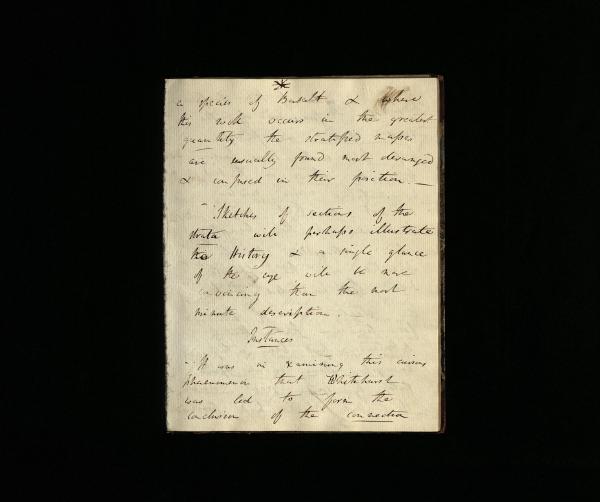 a species of Basalt & where
this rock occurs in the greatest
quantity the stratified masses
are usually found most deranged
& confused in their position. —
"Sketches of sections of the
strata will perhaps illustrate
the History & a single glance
of the eye will be more
convincing than the most
minute description. —
Instances
— It was in examining this curious
phaenomenon that Whitehurst
was led to form the
conclusion of the connection